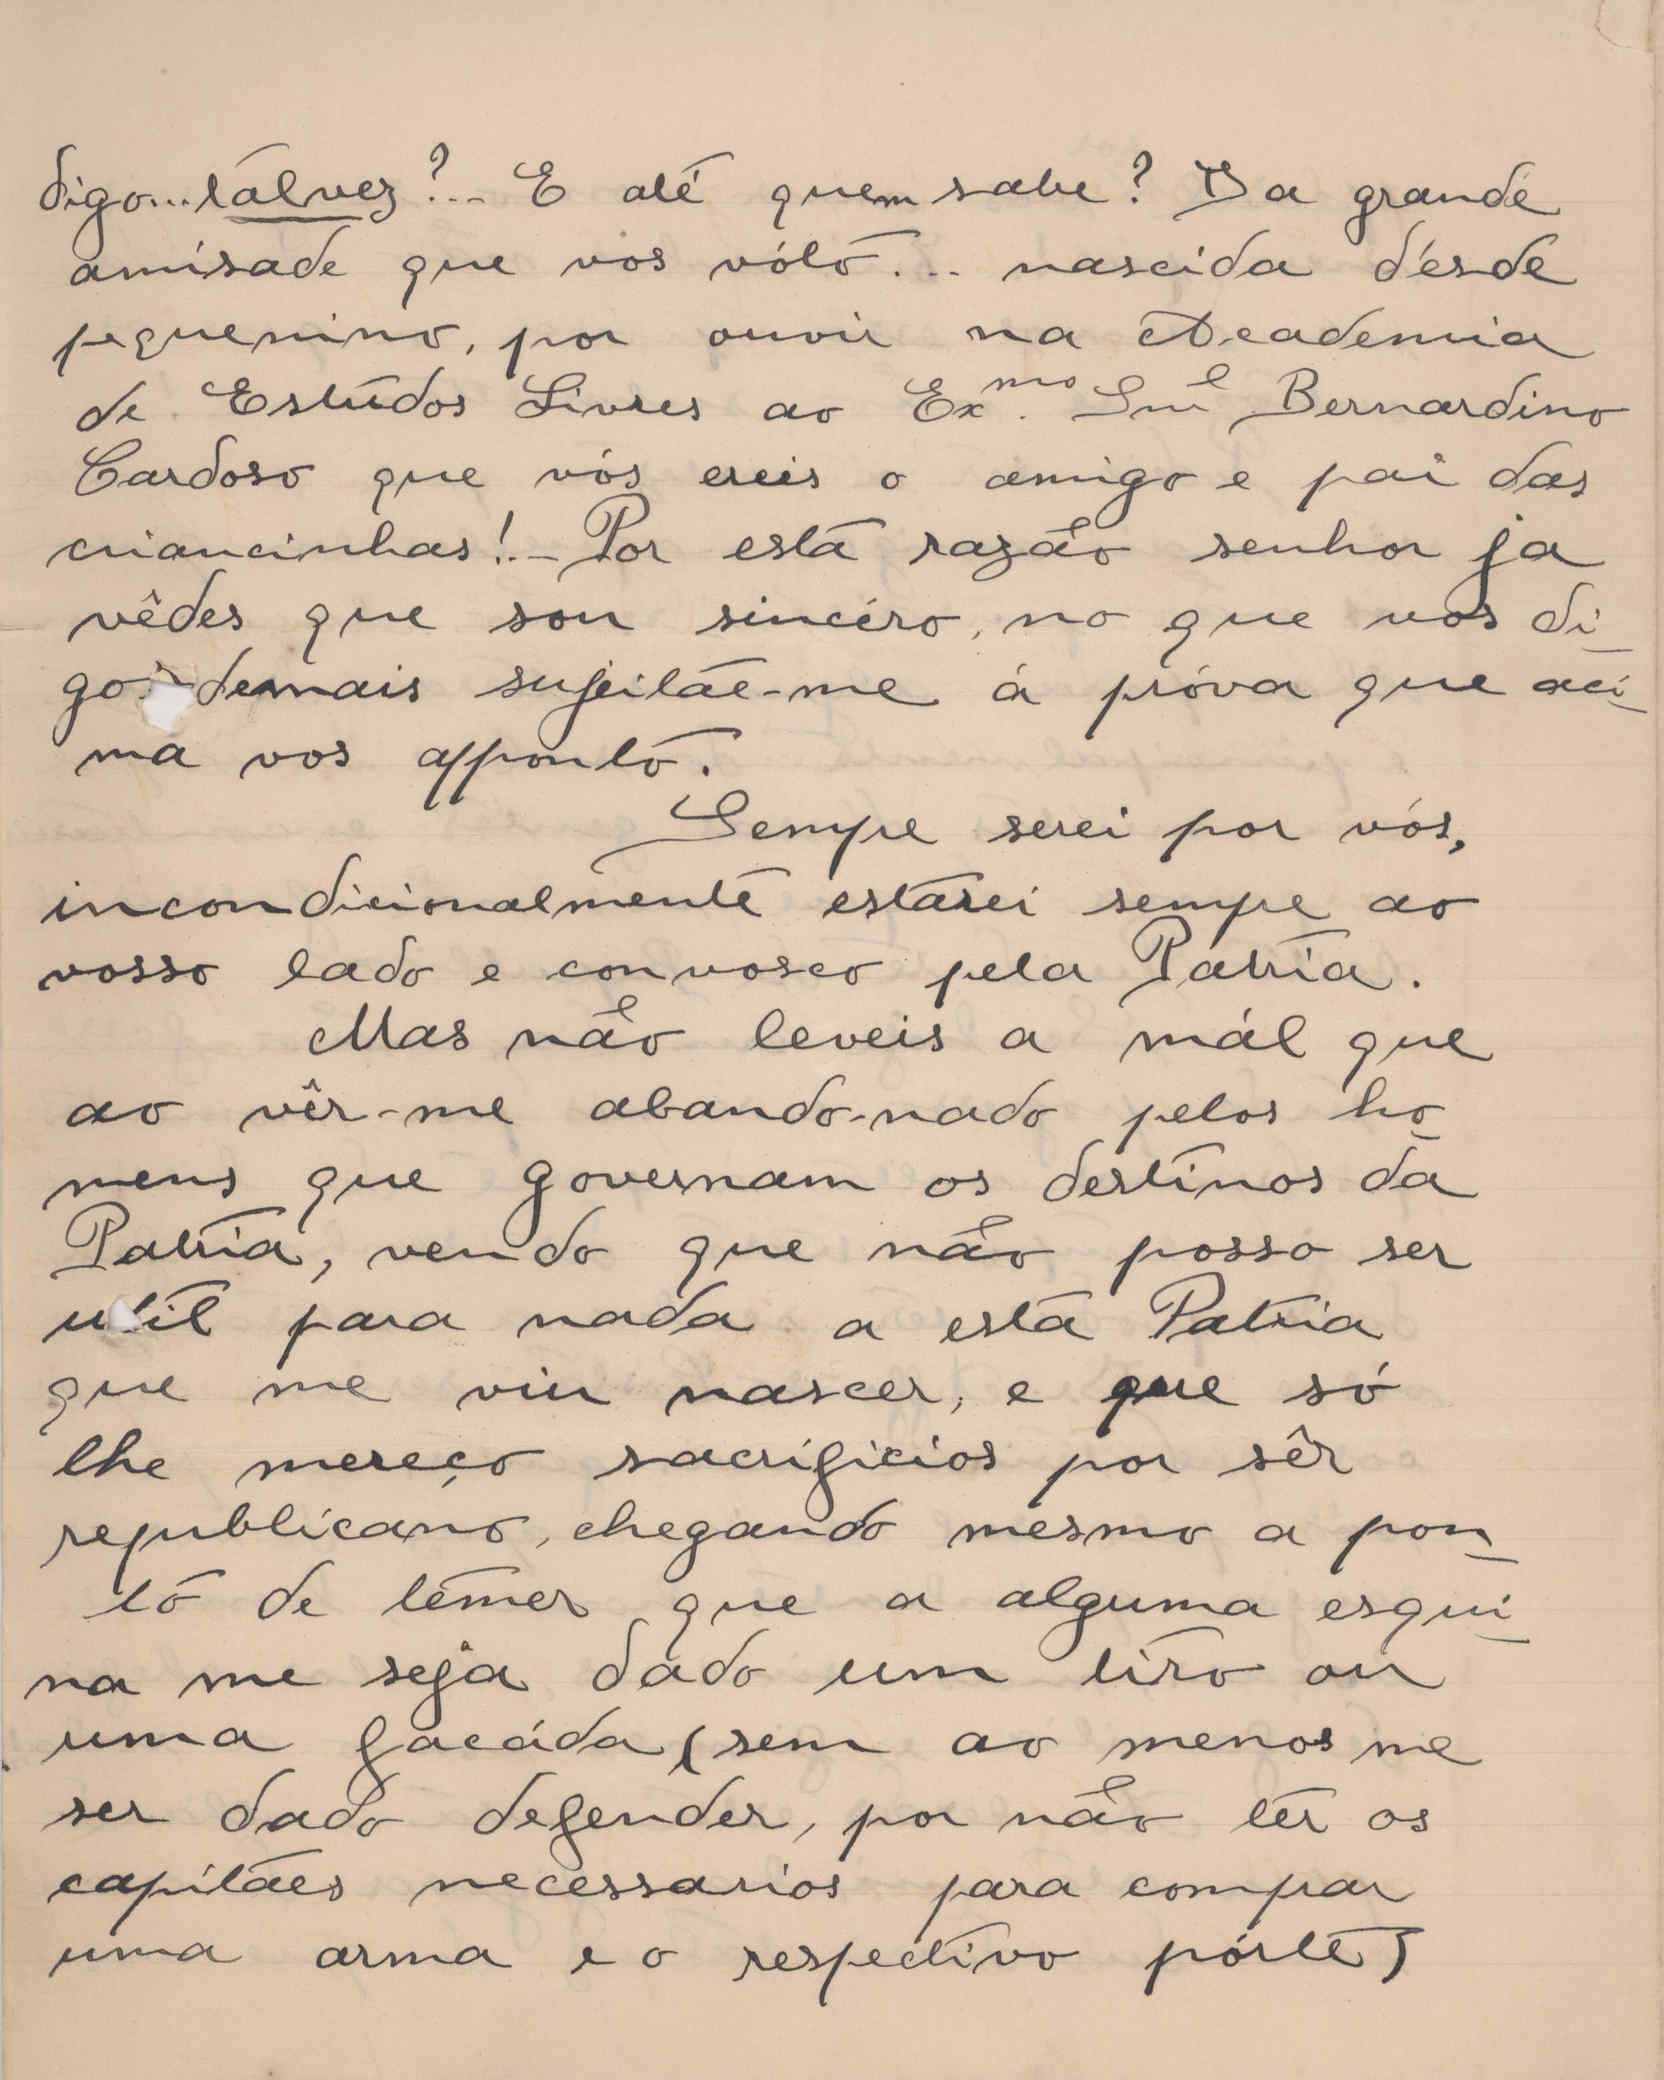 digo...talvez?... E até quem sabe? Da grande
amisade que vos vóto... nascida désde
pequenino, por ouvir na Academia
de Estudos Livres ao Ex.mo Snr Bernardino
Cardoso que vós ereis o amigo e pai das
criancinhas!.– Por esta razão senhor ja
vêdes que sou sincéro, no que vos di-
go demais sujeitáe-me á próva que aci-
ma vos apponto.
Sempe serei por vós,
incondicionalmente estarei sempe ao
vosso lado e convosco pela Patria.
Mas não leveis a mál que
ao vêr-me abandonado pelos ho-
mens que governam os destinos da
Patria, vendo que não posso ser
util para nada a esta Patria
que me viu nascer, e que só
lhe mereço sacrificios por sêr
republicano, chegando mesmo a pon-
to de temer que a alguma esqui-
na me seja dado um tiro ou
uma facáda (sem ao menos me
ser dado defender, por não ter os
capitáes necessarios para comprar
uma arma e o respectivo pórte)